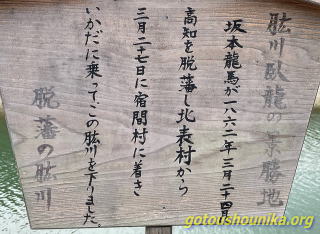 肱川臥龍の景勝地
坂本龍馬が一八六二年三月二十四日
高知を脱藩し北表村から
三月二十七日に宿間村に着き
いかだに乗ってこの肱川を下りました。
脱藩の肱川
gotoushounika.org